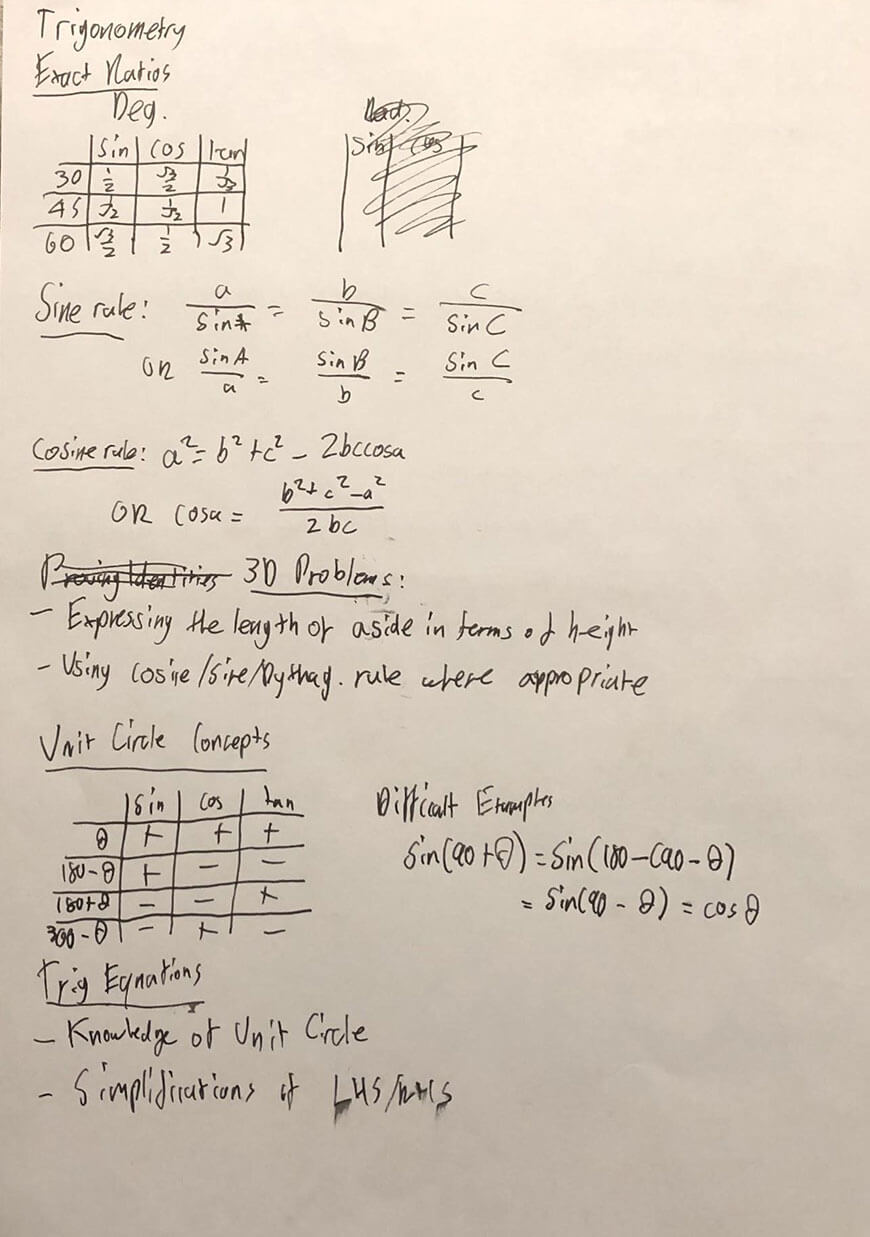 Trigonometry
Exact Ratios
Deg.
sin cos tan
30 1/2 √3/2 1/√3
45 1/√2 1/√2 1
60 √3/2 1/2 √3
sin cos
Sine rule: a/sinA = b/sinB = c/sinC
OR sinA/a = sinB/b = sinC/c
Cosine rule: a² = b² + c² - 2bccosa
OR cosa = b²+c²-a²/2bc
Proving Identities 3D Problems:
- Expressing the length of a side in terms of height
- Using cosine/sine/Pythag. rule where appropriate
Unit Circle Concepts
sin cos tan
θ + + +
180-θ + - -
180+θ - - +
360-θ - + -
Difficult Examples
sin(90+θ) = sin(180-(90-θ)
= sin(90-θ) = cosθ
Trig Equations
- Knowledge of Unit Circle
- Simplifications of LHS/RHS